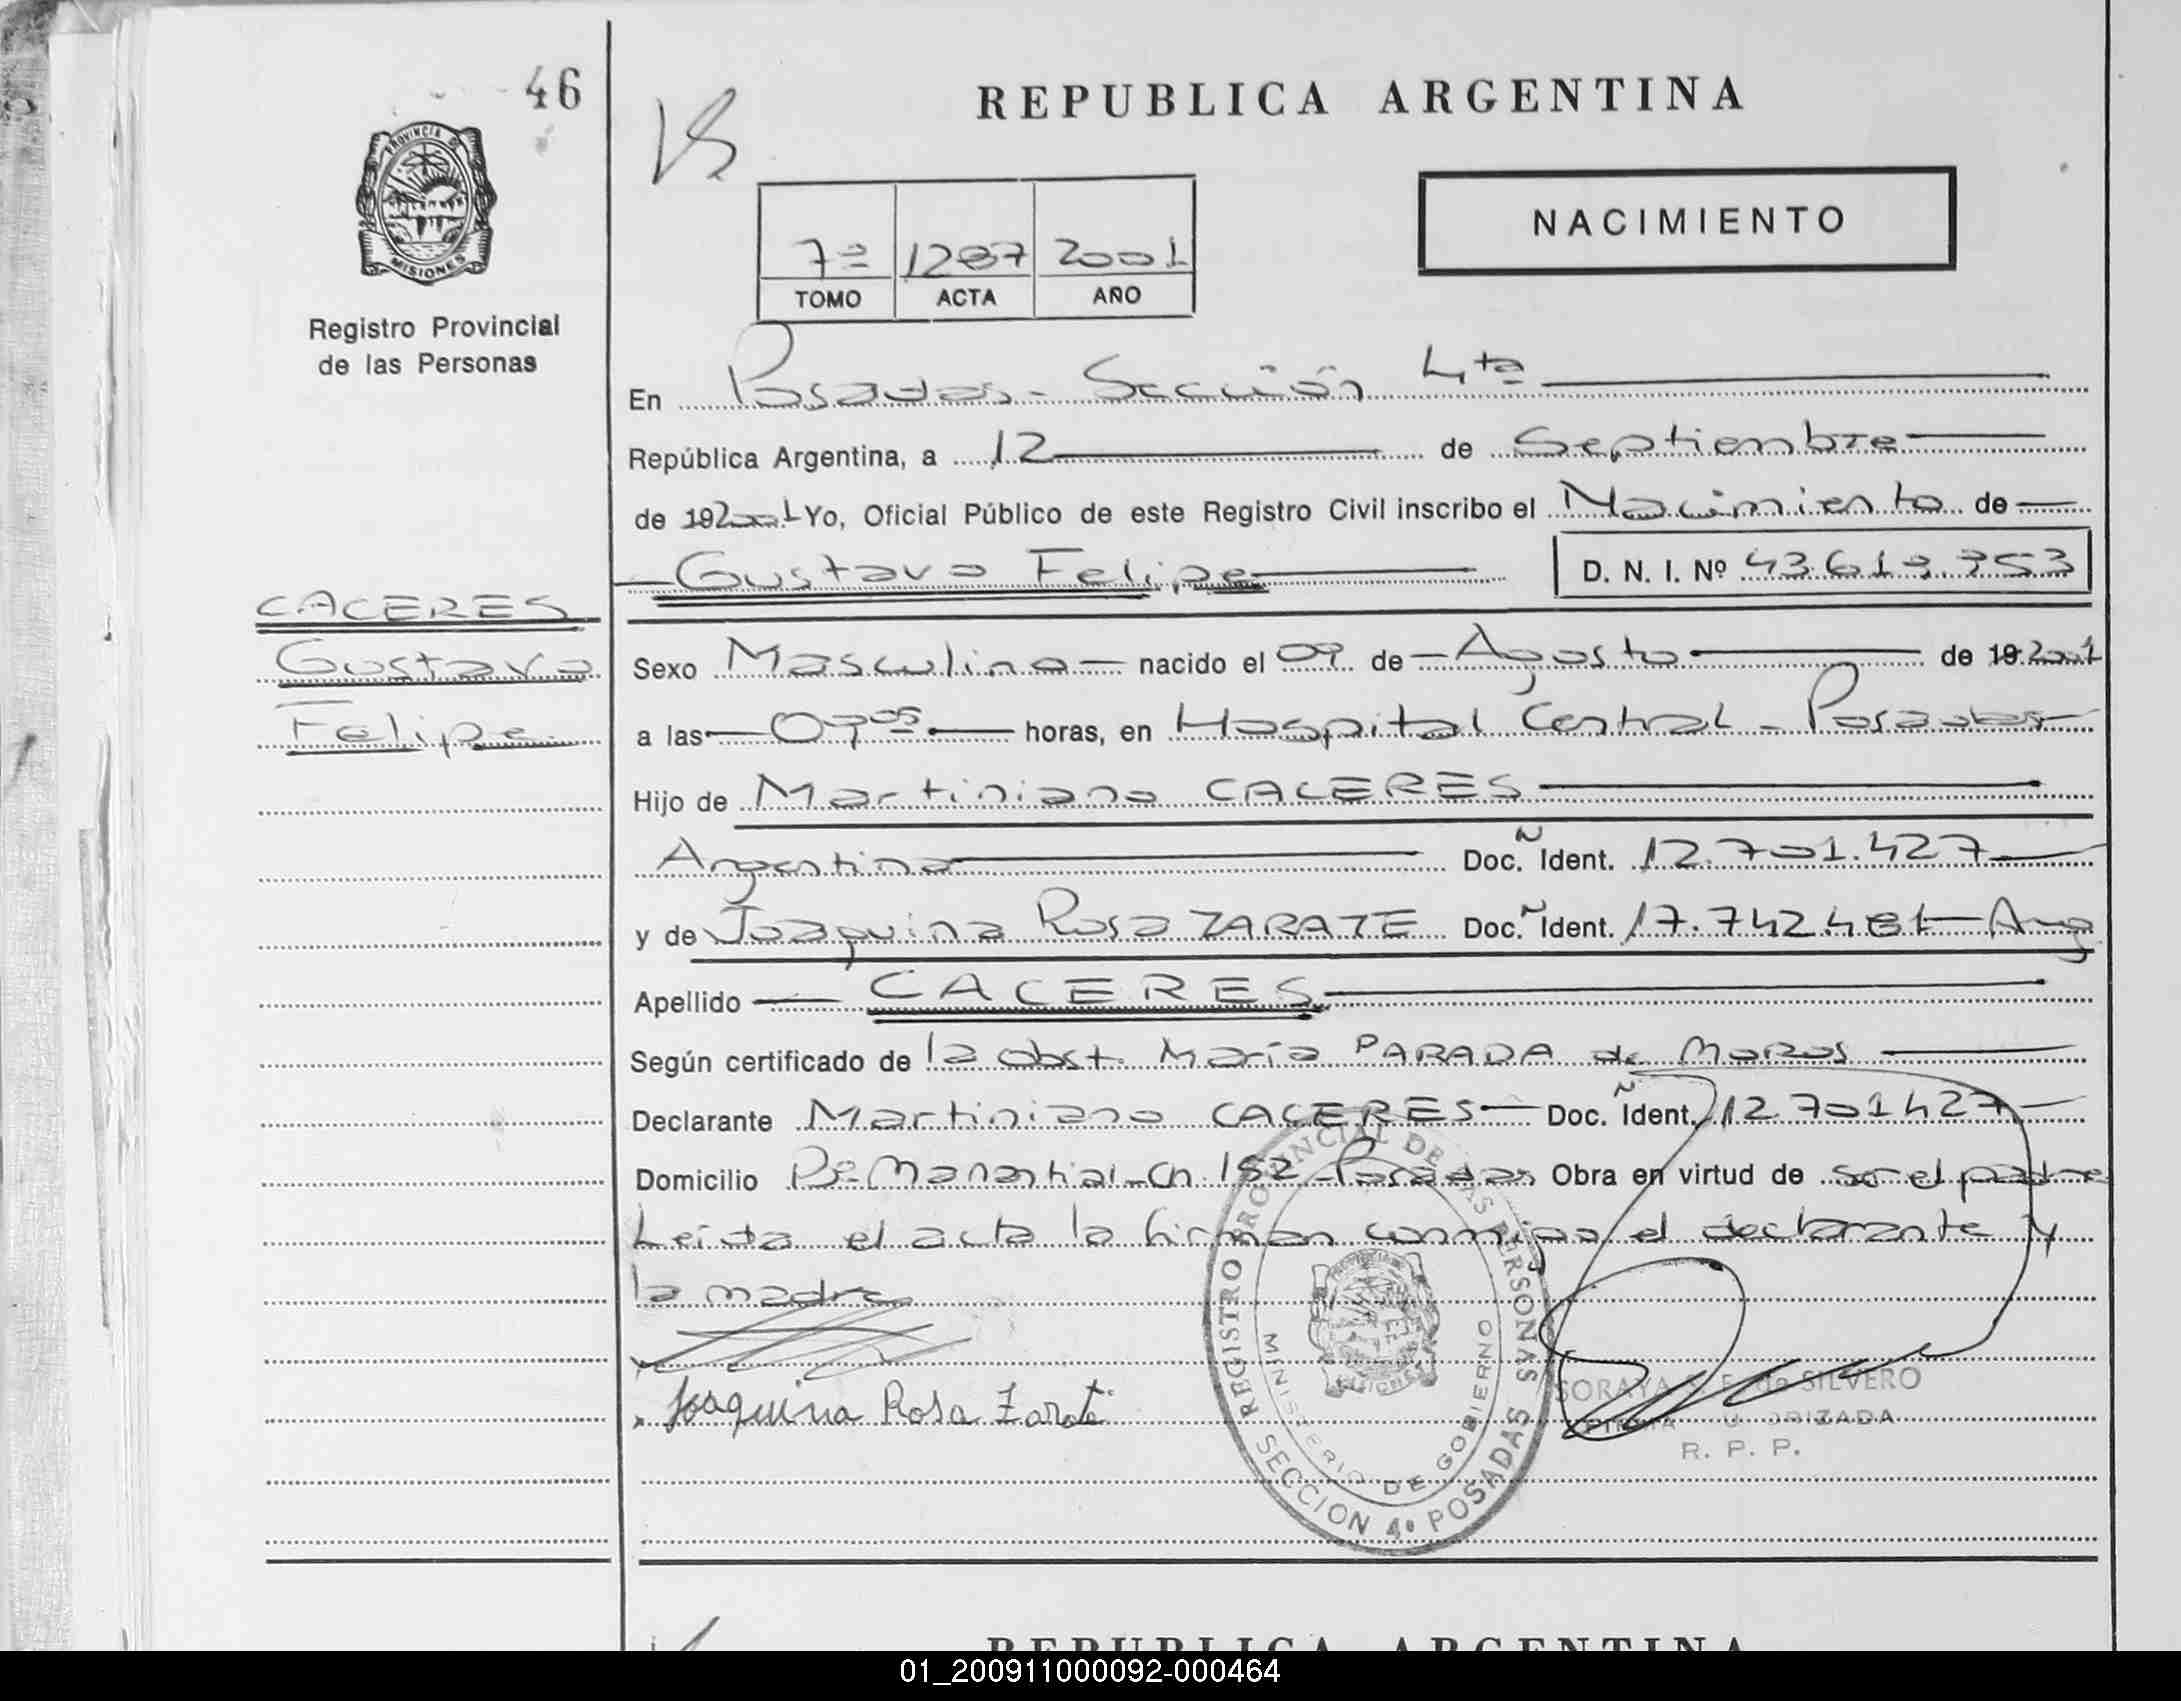 46
PROVINCIA DE
MISIONES
Registro Provincial
de las Personas
REPUBLICA ARGENTINA
NACIMIENTO
7º 1287 2001
TOMO ACTA AÑO
En Posadas - Sección 4ta
República Argentina, a 12 de Septiembre
de 192001 Yo, Oficial Público de este Registro Civil inscribo el Nacimiento de
Gustavo Felipe D. N. I. Nº 43.619.753
CACERES
Gustavo
Felipe
Sexo Masculino nacido el 09 de Agosto de 192001
a las 07 05 horas, en Hospital Central - Posadas
Hijo de Martiniano CACERES
Argentino Doc. Ñ Ident. 12.701.427
y de Joaquina Rosa ZARATE Doc. Ñ Ident. 17.742.481 Arg
Apellido CACERES
Según certificado de la obst. María PARADA de MOROS
Declarante Martiniano CACERES Doc. Ñ Ident. 12.701427
Domicilio Bº Manantial - Cn 152 - Posadas Obra en virtud de ser el padre
Leída el acta la firman conmigo el declarante y
la madre
Joaquina Rosa Zarate
REGISTRO PROVINCIAL DE LAS PERSONAS
MINISTERIO DE GOBIERNO
SECCION 4º POSADAS
SORAYA de SILVERO
FIRMA AUTORIZADA
R. P. P.
REPUBLICA ARGENTINA
01_200911000092-000464